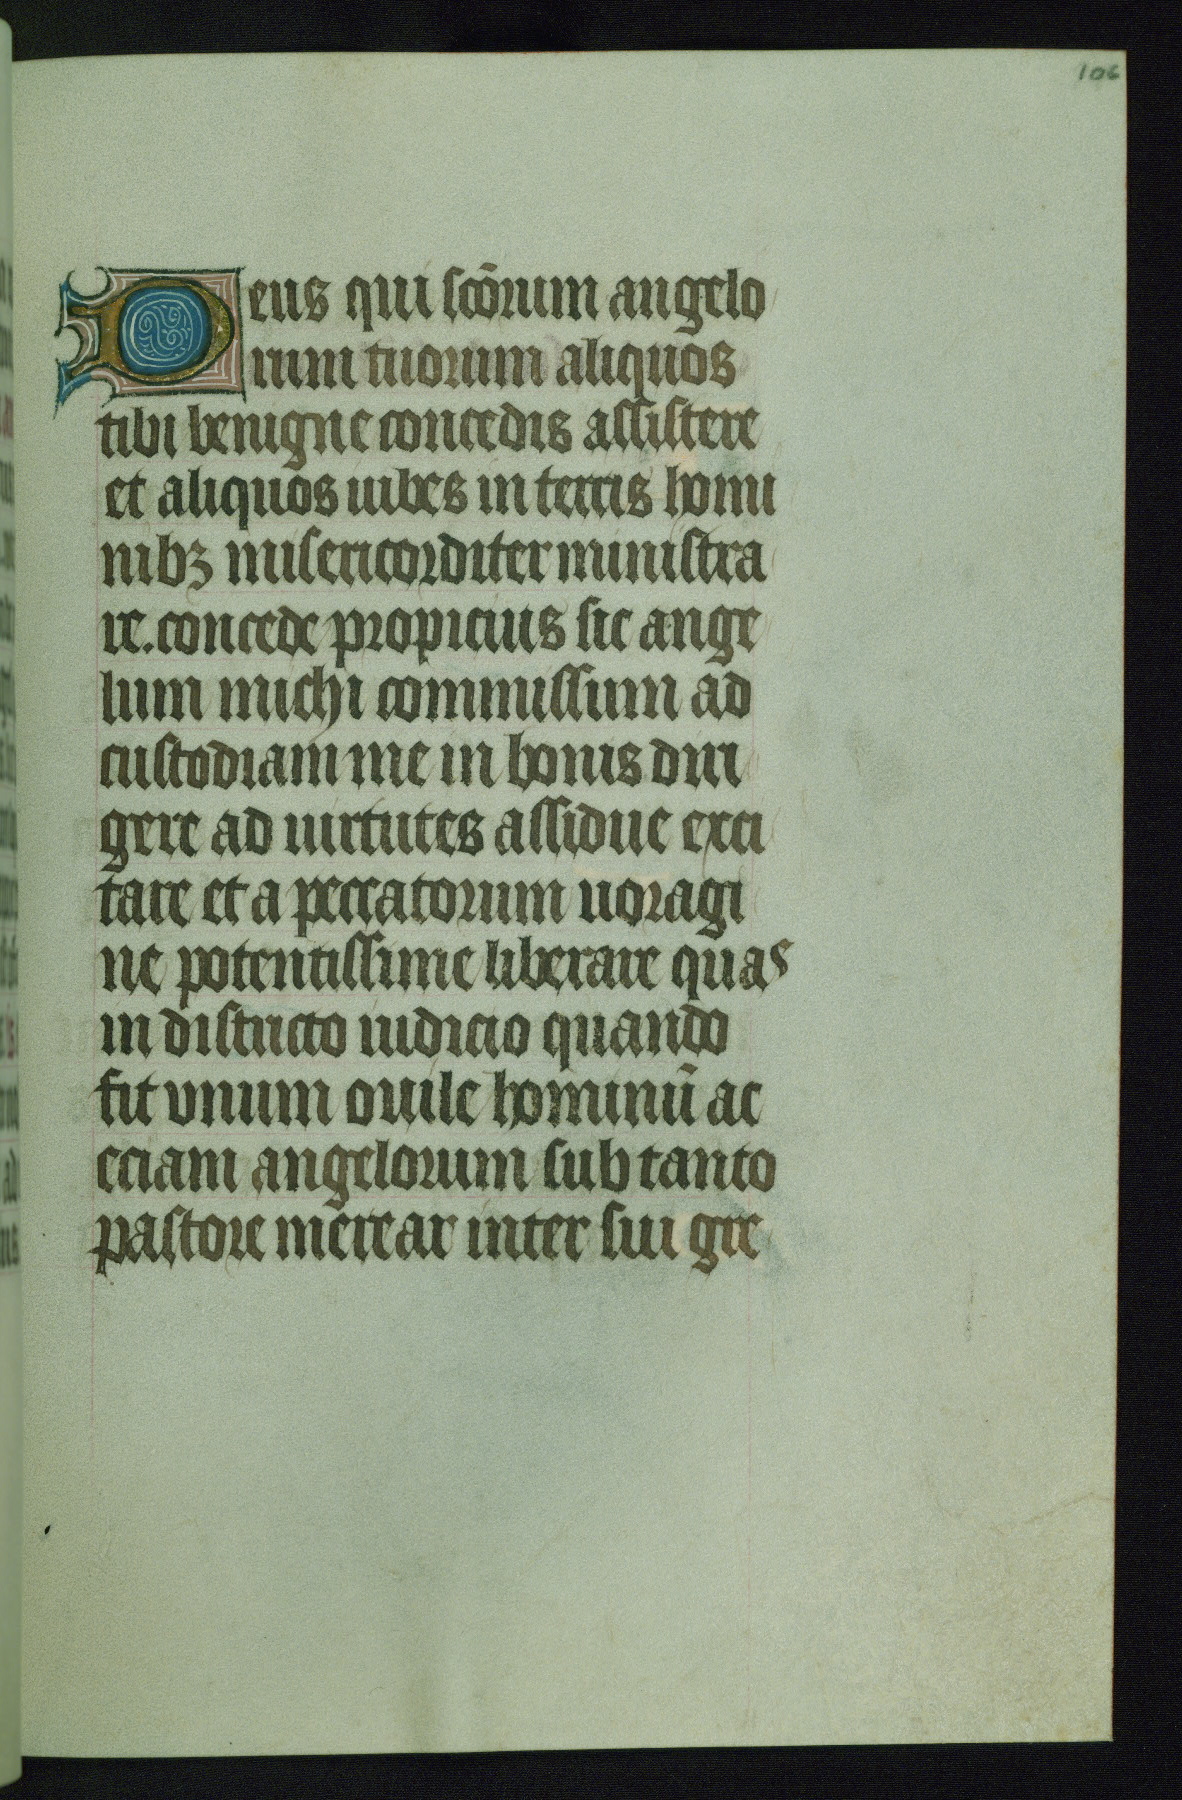 106
Deus qui scõrum angelo
rum tuorum aliquos
tibi benigne concedis assistere
et aliquos iubes in terris homi
nibꝫ misericorditer ministra
re. concede propicius sic ange
lum michi commissum ad
custodiam me in bonis diri
gere ad uirtutes assidue exci
tare et a peccatorum uoragi
ne potentissime liberare quas
in districto iudicio quando
fit vnum ouile hominū ac
eciam angelorum sub tanto
pastore merear inter sui gre